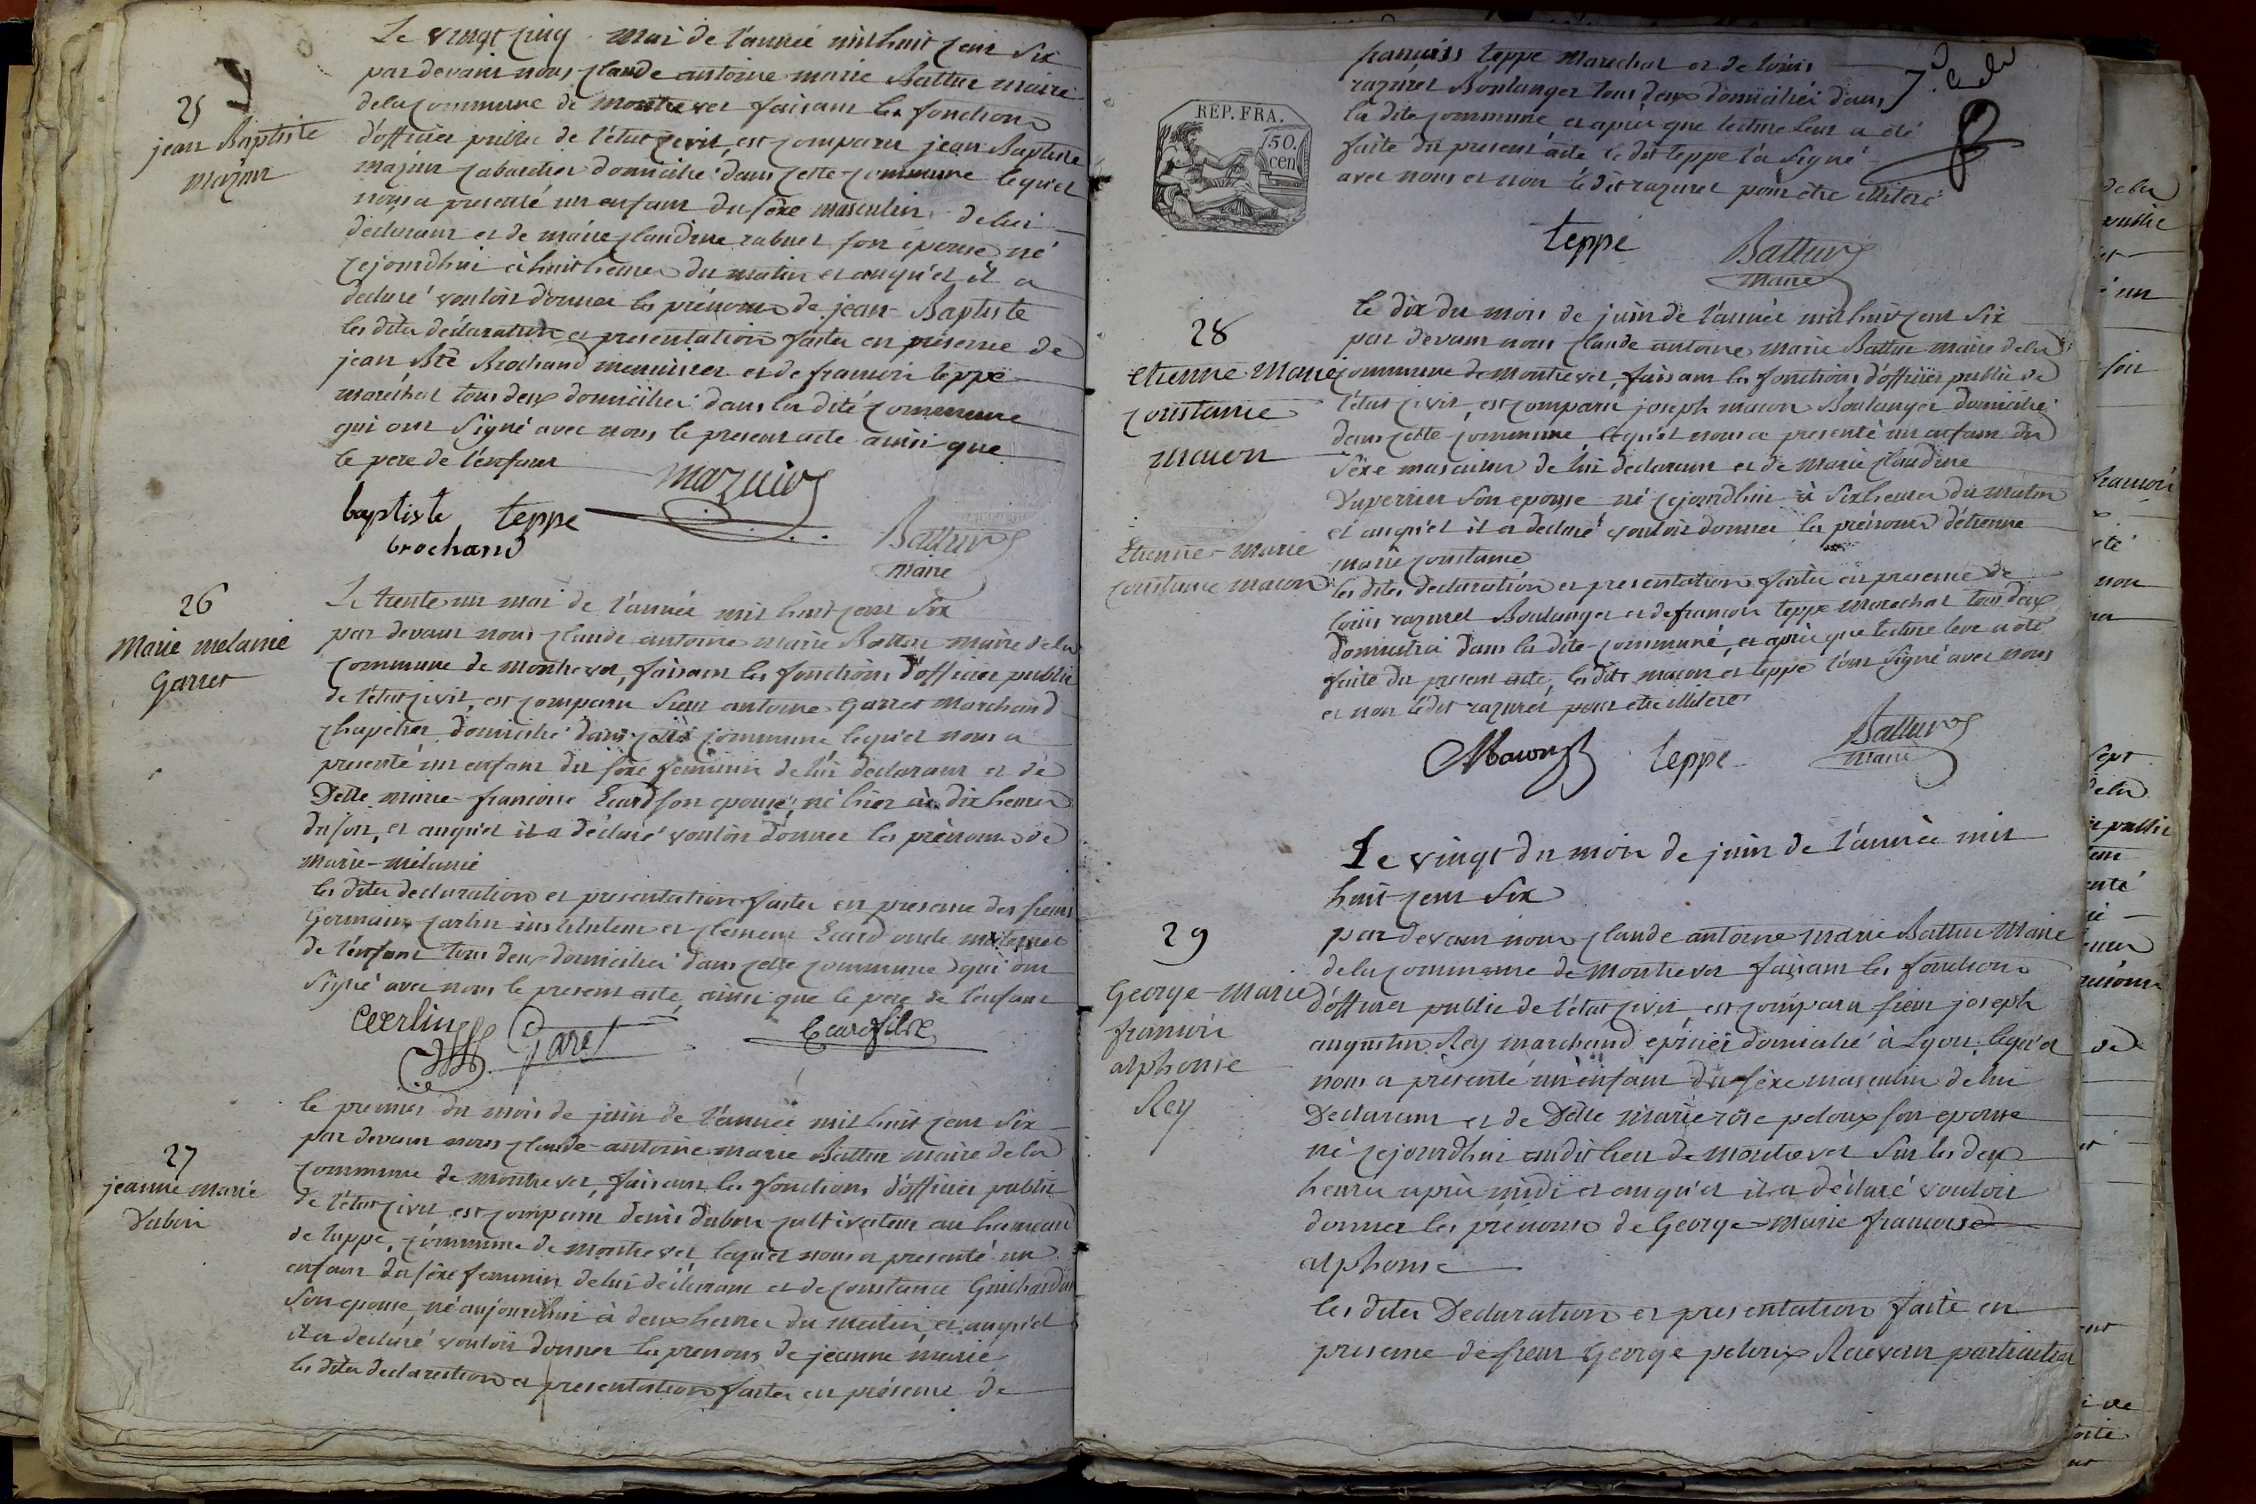 25
jean Baptiste
mazuir
Le vingt cinq mai de l'année mil huit cent six
par devant nous claude antoine marie Battur maire
de la commune de montrevel faisant les fonctions
d'officier public de l'état civil, est comparu jean Baptiste
mazuir cabaretier domicilié dans cette commune lequel
nous a presenté un enfant du sexe masculin, de lui
declarant et de marie claudine rabuel son épouse né
cejourdhui à huit heures du matin et auquel il a
declaré vouloir donner les prénoms de jean-Baptiste
les dites déclaration et presentation faites en présence de
jean Bte Brochand menuisier et de francois teppe
maréchal tous deux domiciliés dans la dite commune
qui ont signé avec nous le present acte ainsi que
le pere de l'enfant
mazuir
baptiste teppe
brochand
Battur
maire
26
Marie melanie
Garret
Le trente un mai de l'année mil huit cent six
par devant nous claude antoine marie Battur maire de la
commune de montrevel, faisant les fonctions d'officier public
de l'état civil, est comparu sieur antoine Garret marchand
chapelier domicilié dans cette commune lequel nous a
presenté un enfant du sexe feminin de lui declarant et de
Delle marie-francoise Ecard son epouse, né hier à dix heures
du soir, et auquel il a déclaré vouloir donner les prénoms de
marie-mélanie
les dites declaration et presentation faites en presence des sieurs
Germain carlin instituteur et clement Ecard oncle maternel
de l'enfant tous deux domiciliés dans cette commune qui ont
signé avec nous le present acte, ainsi que le pere de l'enfant
Cerlin Garet Ecard filse
27
jeanne marie
Dubois
le premier du mois de juin de l'année mil huit cent six
par devant nous claude-antoine marie Battur maire de la
commune de montrevel, faisant les fonctions d'officier public
de l'état civil est comparu denis dubois cultivateur au hameau
de cuppe, commune de montrevel lequel nous a presenté un
enfant du sexe feminin de lui déclarant et de constance Guichardon
son epouse, né aujourdhui à deux heures du matin et auquel
il a declaré vouloir donner les prenoms de jeanne marie
les dites declaration et presentation faites en présence de
francois teppe marechal et de louis
razurel Boulanger tous deux domiciliés dans
la dite commune et après que lecture leur a été
faite du present acte le dit teppe l'a signé
avec nous et non le dit razurel pour etre illiteré
REP. FRA.
50.
cen
teppe Battur
maire
28
etienne Marie
constance
macon
Etienne-Marie
constance macon
le dix du mois de juin de l'année mil huit cent six
par devant nous claude antoine marie Battur maire de la
commune de montrevel, faisant les fonctions d'officier public de
l'état civil, est comparu joseph macon Boulanger domicilié
dans cette commune lequel nous a presenté un enfant du
sexe masculin de lui declarant et de marie claudine
Duperrier son epouse né cejourdhui à six heures du matin
et auquel il a declaré vouloir donner les prénoms d'étienne
marie constance
les dites declaration et presentation faites en presence de
louis razurel Boulanger et de francois teppe marechal tous deux
domiciliés dans la dite commune, et après que lecture leur a été
faite du present acte, les dits macon et teppe l'ont signé avec nous
et non le dit razurel pour etre illiteré
Macon teppe Battur
maire
29
George-Marie
francois
alphonse
Rey
Le vingt du mois de juin de l'année mil
huit cent six
par devant nous claude antoine marie Battur Maire
de la commune de montrevel faisant les fonctions
d'officier public de l'état civil, est comparu sieur joseph
augustin Rey marchand épicier domicilié à Lyon, lequel
nous a présenté un enfant du sexe masculin de lui
Declarant et de Delle Marie rose peloux son epouse
né cejourdhui audit lieu de montrevel sur les deux
heures après midi et auquel il a déclaré vouloir
donner les prénoms de George-Marie francois
alphonse
les dites Declaration et presentation faite en
presence de sieur George peloux Receveur particulier